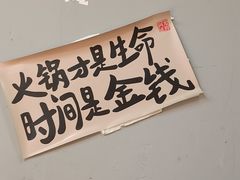 火锅才是生命
时间是金钱